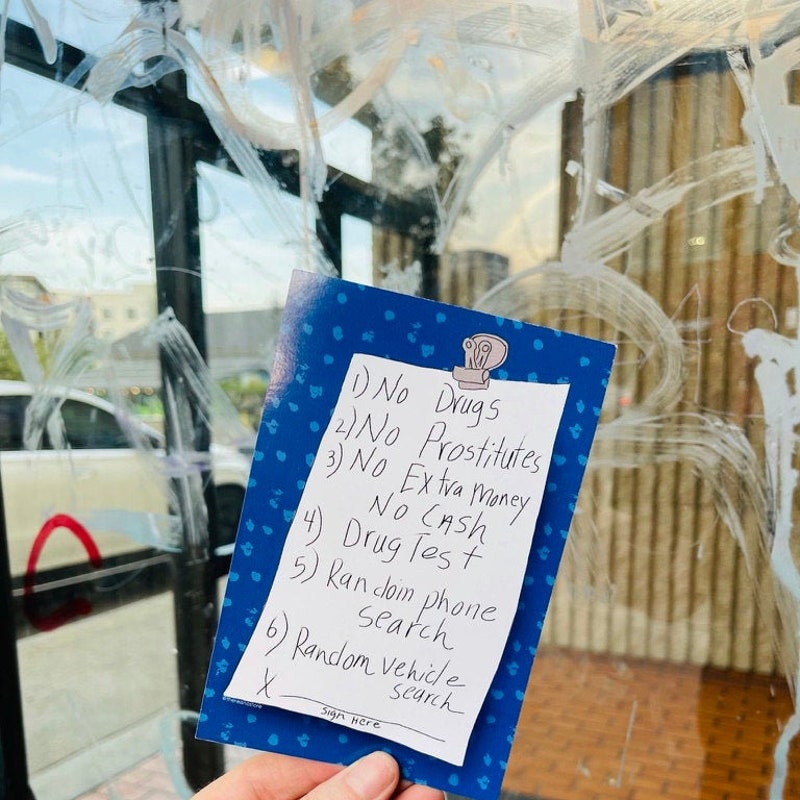 1) No Drugs
2) No Prostitutes
3) No Extra money
No CASH
4) Drug Test
5) Random phone
search
6) Random vehicle
search
X
Sign Here